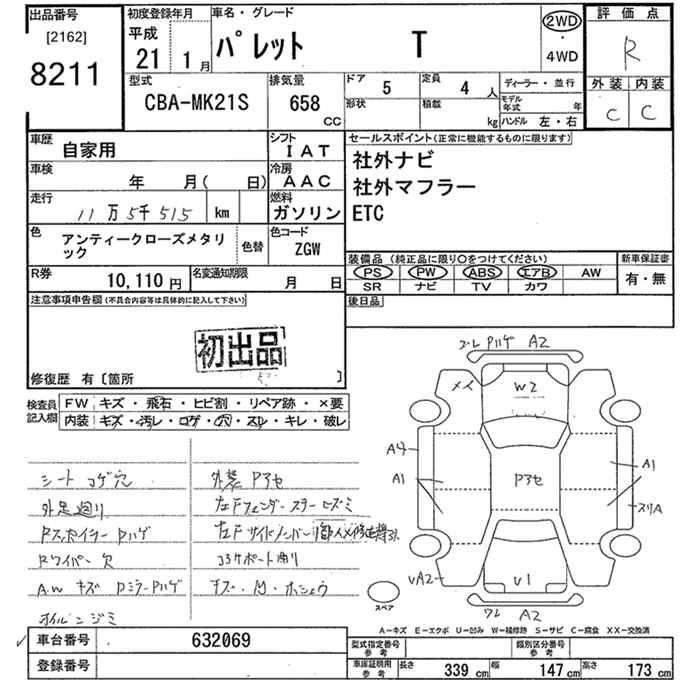 出品番号
[2162]
8211
初度登録年月
平成
21 1月
車名・グレード
パレット T
2WD
・
4WD
評価点
R
外装 内装
C C
型式
CBA-MK21S
排気量
658
CC
ドア 5
形状
定員 4 人
積載 kg
ディーラー・並行
モデル年式 年
ハンドル 左・右
車歴 自家用
シフト IAT
車検 年 月( 日)
冷房 AAC
走行 11万5千515 km
燃料 ガソリン
色 アンティークローズメタリック
色替
色コード ZGW
R券 10,110円
名変通知期限 月 日
セールスポイント(正常に機能するものに限ります)
社外ナビ
社外マフラー
ETC
装備品(純正品に限り○をつけてください)
PS PW ABS エアB AW
SR ナビ TV カワ
新車保証書
有・無
後日品
注意事項申告欄(不具合内容等は具体的に記入して下さい)
初出品
修復歴 有〔箇所 〕
検査員記入欄
FW キズ・飛石・ヒビ割・リペア跡・×要
内装 キズ・汚レ・コゲ・穴・スレ・キレ・破レ
シートコゲ穴
外足廻り
Rスポイラー Pハゲ
Rワイパー欠
A.W キズ Dミラー Pハゲ
オイルニジミ
外装 Pアセ
左Fフェンダーステーヒズミ
左Fサイドメンバー
コアサポート曲り
キズ・凹・ホシュウ
ズレ Pハゲ A2
メイ
W2
A4
A1
Pアセ
A1
スリA
UA2
U1
ワレ A2
スペア
A-キズ E-エクボ U-凹み W-補修跡 S-サビ C-腐食 XX-交換済
車台番号 632069
登録番号
型式指定番号 参考
類別区分番号 参考
車庫証明用 参考
長さ 339 cm
幅 147 cm
高さ 173 cm